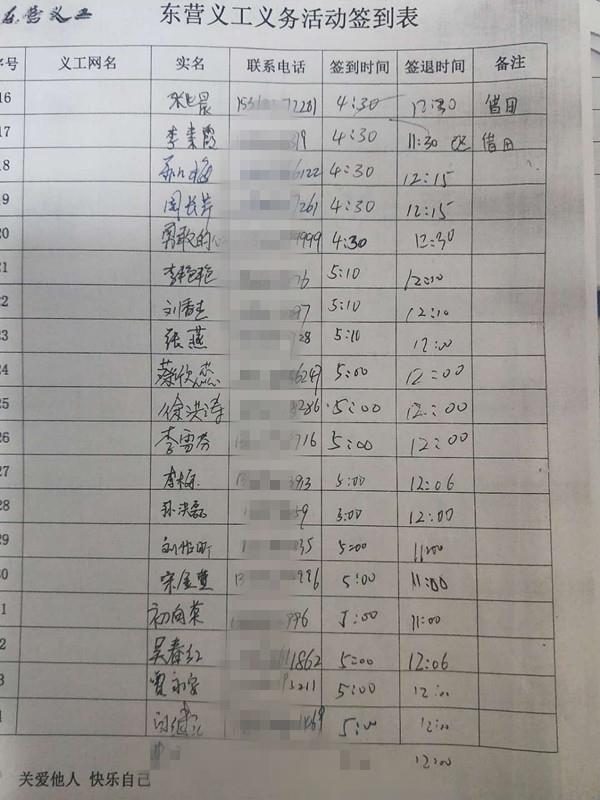 东营义工
东营义工义务活动签到表
序号 义工网名 实名 联系电话 签到时间 签退时间 备注
16 2281 4:30 12:30 借田
17 李素霞 9 4:30 11:30 借田
18 6122 4:30 12:15
19 周长芹 7261 4:30 12:15
20 勇敢的心 9999 4:30 12:30
21 李艳艳 76 5:10 12:10
22 刘香玉 97 5:10 12:10
23 张燕 28 5:10 12:00
24 蔡欣蕊 6247 5:00 12:00
25 徐洪涛 8286 5:00 12:00
26 李雪芬 716 5:00 12:00
27 李梅 393 5:00 12:06
28 孙洪磊 59 3:00 12:00
29 335 5:00 11:00
30 996 5:00 11:00
1 初向荣 996 5:00 11:00
2 吴春红 1862 5:00 12:06
3 贾永宏 3211 5:00 12:00
4 1469 5:00 12:00
12:00
关爱他人 快乐自己